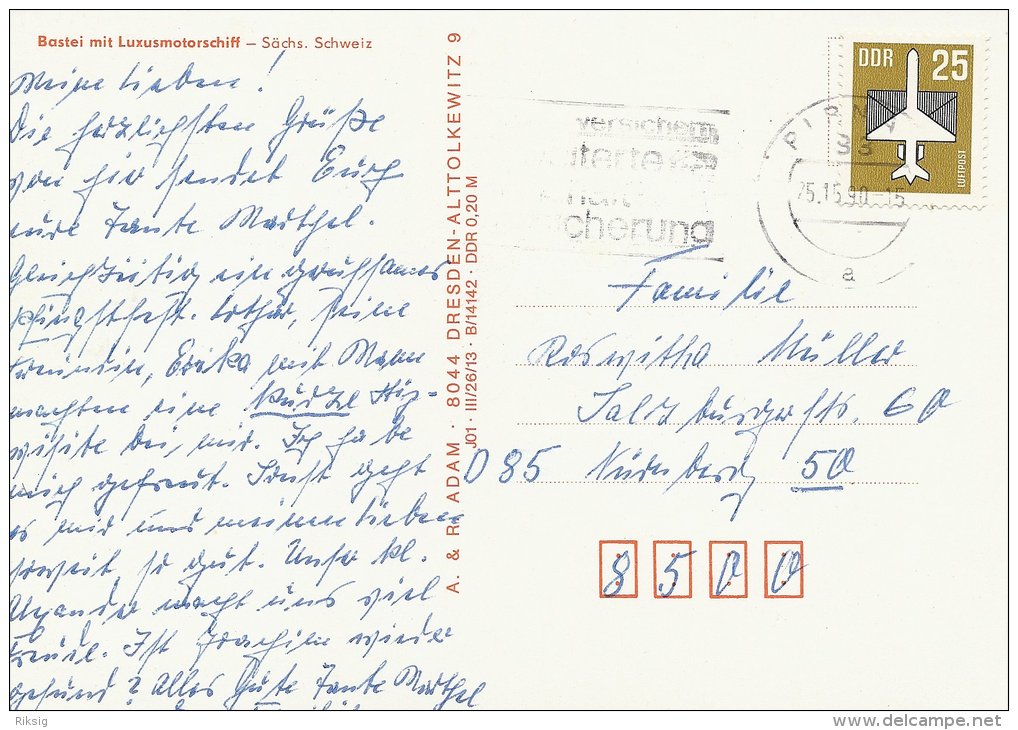 Bastei mit Luxusmotorschiff – Sächs. Schweiz
Meine Lieben!
Die herzlichsten Grüße
von hier sendet Euch
eure Tante Marthel.
Gleichzeitig ein geruhsames
Pfingstfest. Lothar, seine
Freundin, Erika mit Mann
machten eine kurze Stip-
visite bei mir. Ich habe
mich gefreut. Sonst geht
es mir und meinen Lieben
soweit so gut. Unser kl.
macht uns viel
Freude. Ist Joachim wieder
gesund? Alles Gute Tante Marthel
A. & R. ADAM · 8044 DRESDEN-ALTTOLKEWITZ 9
J01 · III/26/13 · B/14142 · DDR 0,20 M
DDR 25
LUFTPOST
PIRNA
25.15.90-15
a
versichern
cherung
Familie
Roswitha Müller
Salzburgerstr. 60
D 85 Nürnberg 50
8500
Riksig
www.delcampe.net